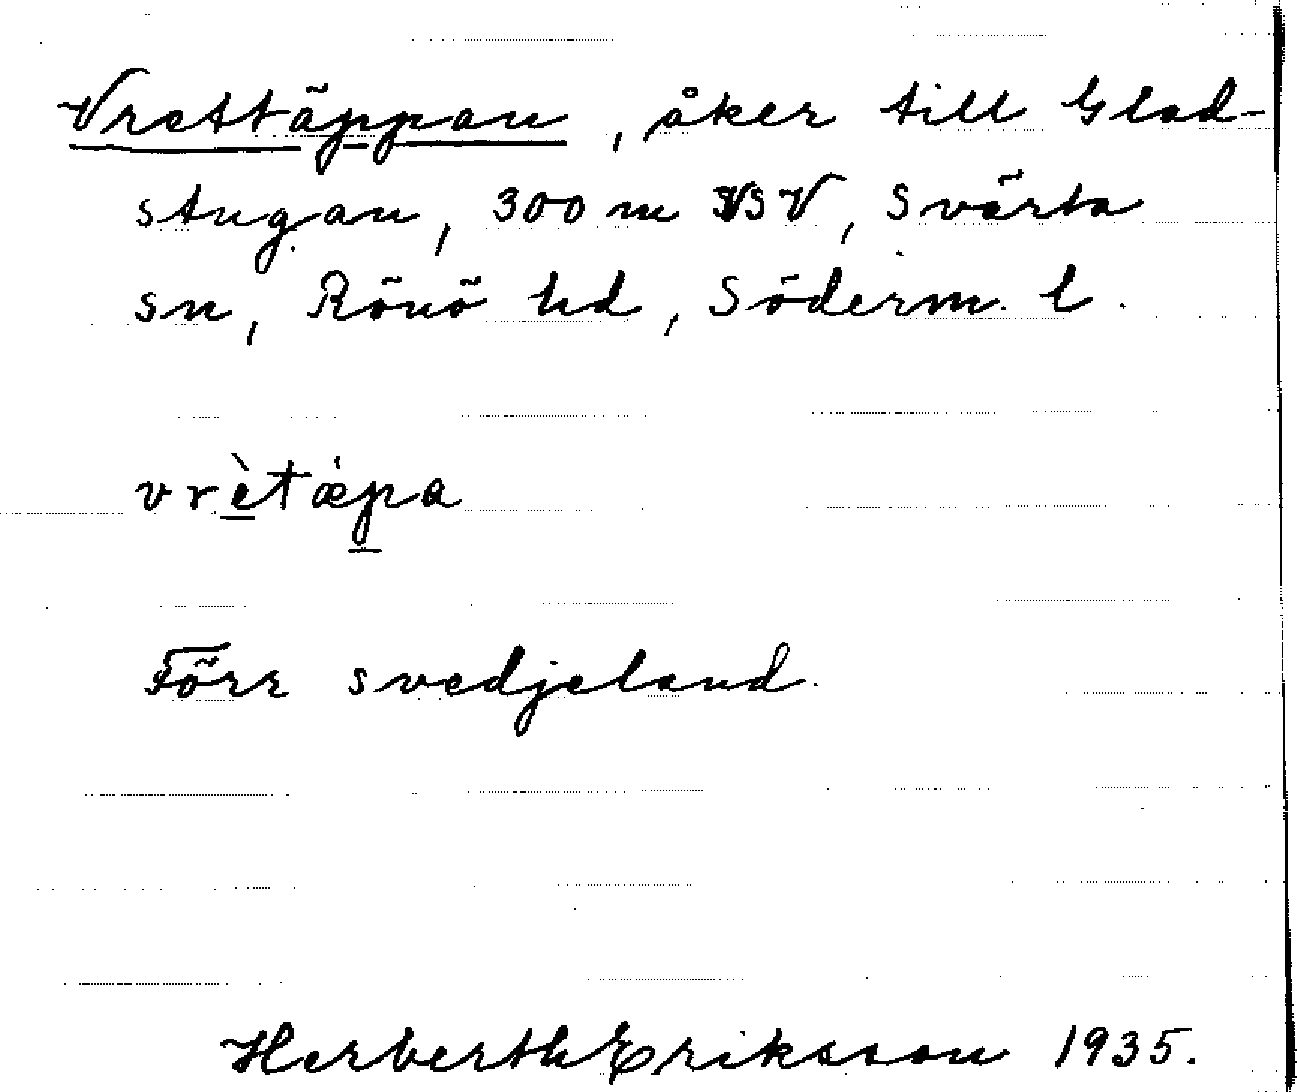 Vrettäppan, åker till Glad-
stugan, 300 m SV, Svärta
sn, Rönö hd, Söderm. l.
vrètæ̀pa
Förr svedjeland.
Herberth Eriksson 1935.